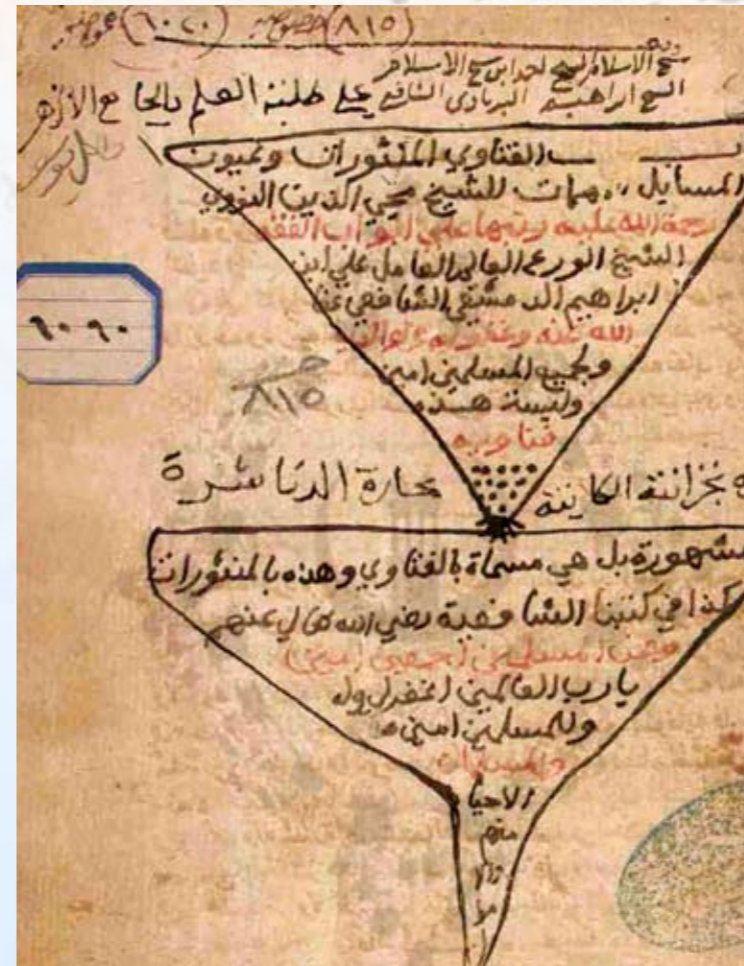 (٨١٥) خصوصية (٦٠٢٠) عمومية
شيخ الاسلام الشيخ احمد ابن شيخ الاسلام
الشيخ ابراهيم البرماوي الشافعي على طلبة العلم بالجامع الازهر
الفتاوي المنثورات وعيون
المسايل المهمات للشيخ محيي الدين النووي
رحمة الله عليه رتبها على ابواب الفقه
الشيخ الورع العالم العامل علي ابن
ابراهيم الدمشقي الشافعي عفى
الله عنه وغفر له ولوالديه
ولجميع المسلمين امين
وليست هذه
فتاويه
٦٠٩٠
٨١٥
بخزانته الكاينة بحارة الدناشرة
مشهورة بل هي مسماة بالفتاوي وهذه بالمنثورات
كذا في كتبنا الشافعية رضي الله تعالى عنهم
اجمعين امين
يارب العالمين اغفر لي وله
وللمسلمين امين
والمسلمات
الاحيا
منهم
والا
موا